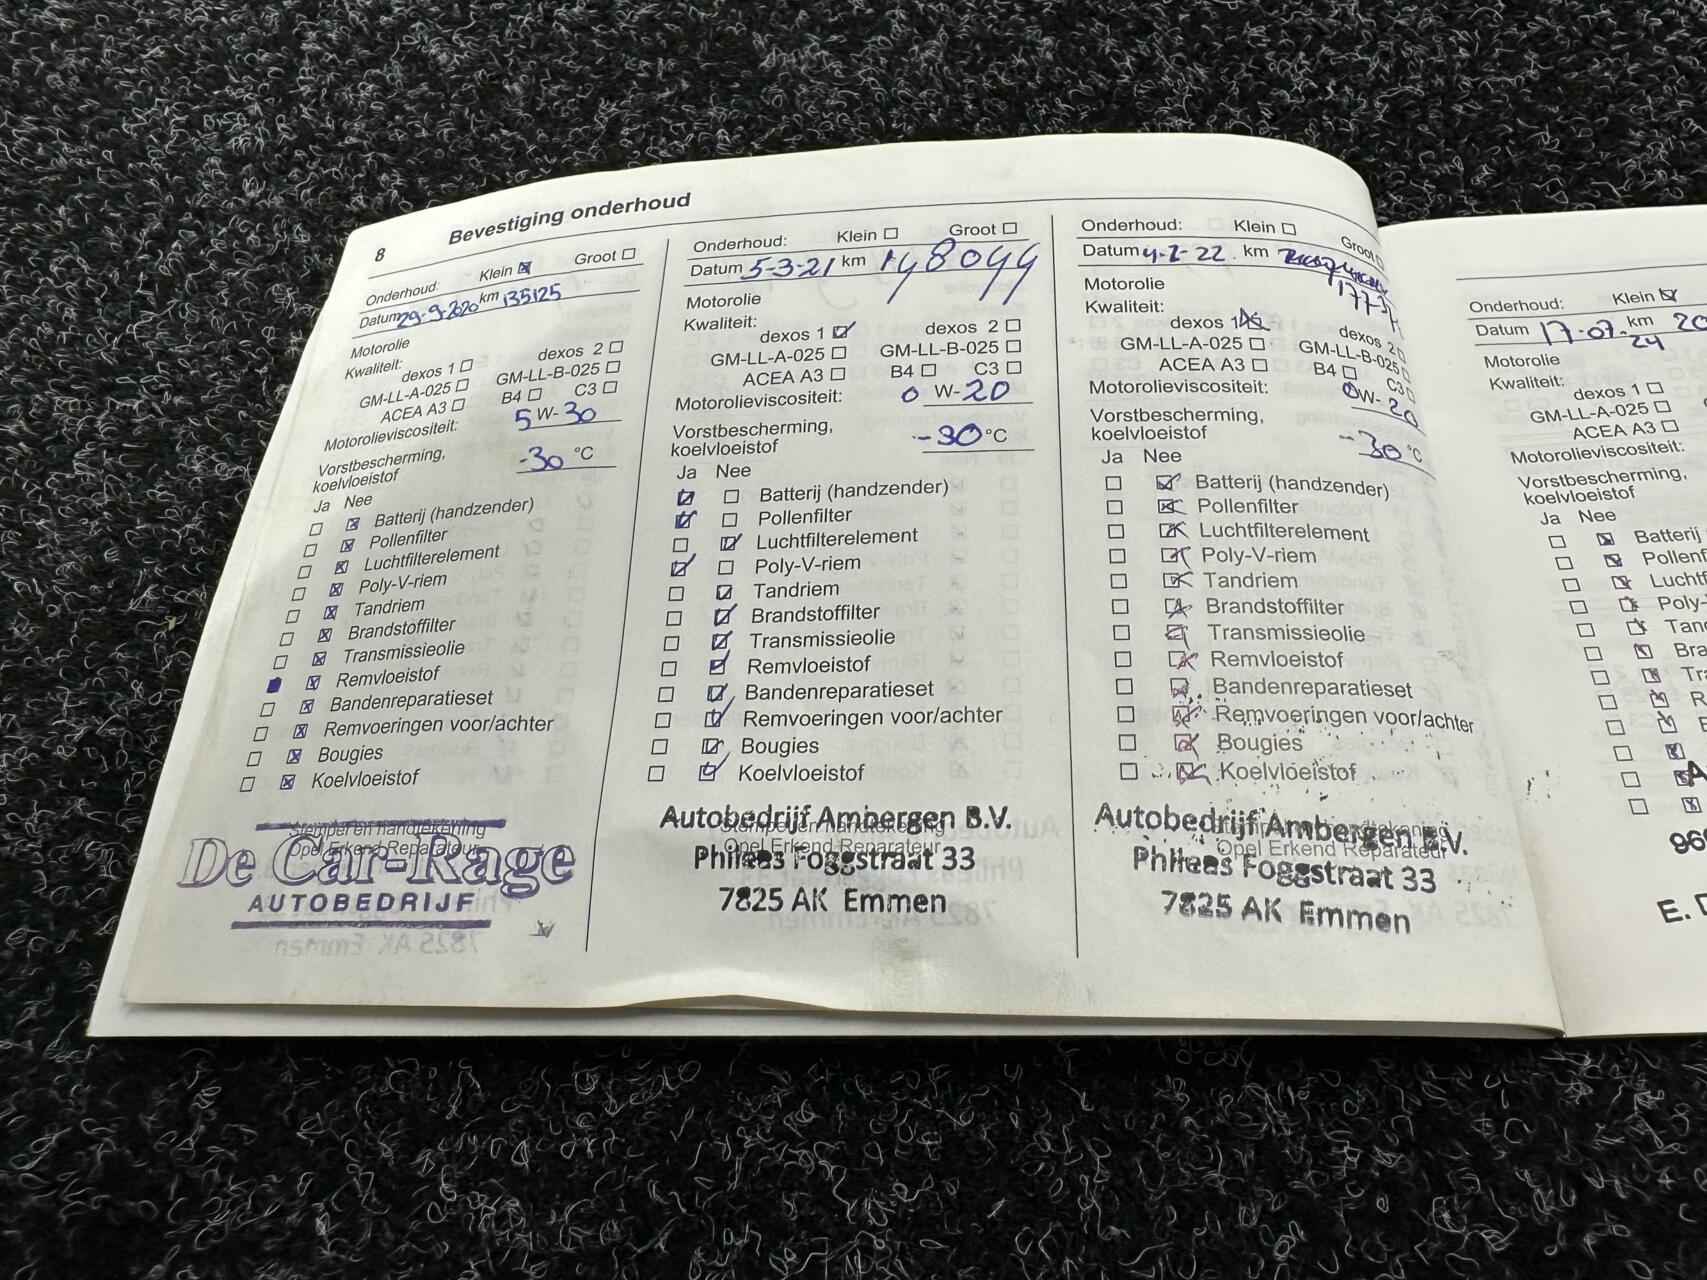 8 Bevestiging onderhoud
Onderhoud: Klein Groot
Datum 29-9-2020 km 135125
Motorolie
Kwaliteit:
dexos 1 dexos 2
GM-LL-A-025 GM-LL-B-025
ACEA A3 B4 C3
Motorolieviscositeit: 5 W-30
Vorstbescherming,
koelvloeistof -30 °C
Ja Nee
Batterij (handzender)
Pollenfilter
Luchtfilterelement
Poly-V-riem
Tandriem
Brandstoffilter
Transmissieolie
Remvloeistof
Bandenreparatieset
Remvoeringen voor/achter
Bougies
Koelvloeistof
Stempel en handtekening
Opel Erkend Reparateur
De Car-Rage
AUTOBEDRIJF
Onderhoud: Klein Groot
Datum 5-3-21 km 148099
Motorolie
Kwaliteit:
dexos 1 dexos 2
GM-LL-A-025 GM-LL-B-025
ACEA A3 B4 C3
Motorolieviscositeit: 0 W-20
Vorstbescherming,
koelvloeistof -30 °C
Ja Nee
Batterij (handzender)
Pollenfilter
Luchtfilterelement
Poly-V-riem
Tandriem
Brandstoffilter
Transmissieolie
Remvloeistof
Bandenreparatieset
Remvoeringen voor/achter
Bougies
Koelvloeistof
Stempel en handtekening
Opel Erkend Reparateur
Autobedrijf Ambergen B.V.
Phileas Foggstraat 33
7825 AK Emmen
Onderhoud: Klein Groot
Datum 4-2-22. km
Motorolie
Kwaliteit:
dexos 1 dexos 2
GM-LL-A-025 GM-LL-B-025
ACEA A3 B4 C3
Motorolieviscositeit: 0 W-20
Vorstbescherming,
koelvloeistof -30 °C
Ja Nee
Batterij (handzender)
Pollenfilter
Luchtfilterelement
Poly-V-riem
Tandriem
Brandstoffilter
Transmissieolie
Remvloeistof
Bandenreparatieset
Remvoeringen voor/achter
Bougies
Koelvloeistof
Opel Erkend Reparateur
Autobedrijf Ambergen B.V.
Phileas Foggstraat 33
7825 AK Emmen
Onderhoud: Klein
Datum 17-07-24 km 20
Motorolie
Kwaliteit:
dexos 1
GM-LL-A-025
ACEA A3
Motorolieviscositeit:
Vorstbescherming,
koelvloeistof
Ja Nee
Batterij
Pollenf
Luchtf
Poly-
Tand
Bra
Tra
R
A
96
E. D